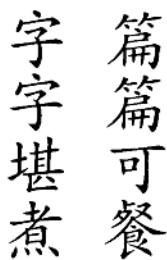 篇篇可餐
字字堪煮